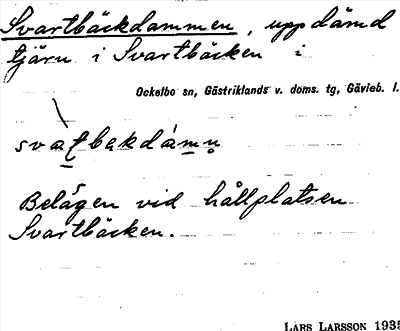 Svartbäckdammen, uppdämd
tjärn i Svartbäcken i
Ockelbo sn, Gästriklands v. doms. tg, Gävleb. l.
svatbakdámn
Belägen vid hållplatsen
Svartbäcken.
LARS LARSSON 1935